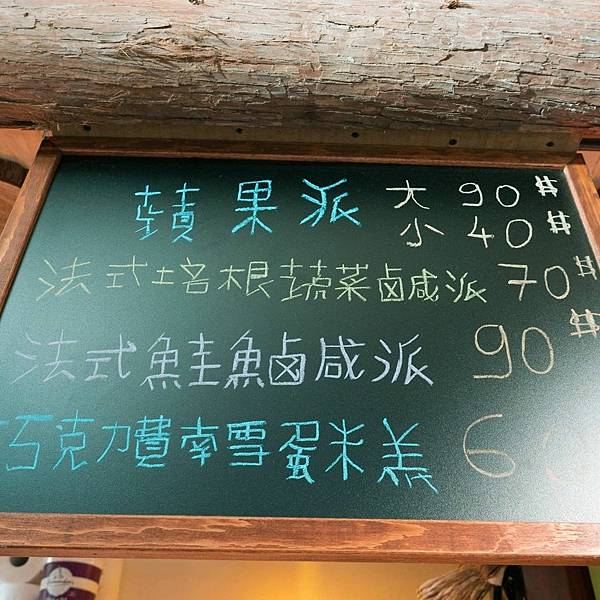 蘋果派 大 90$
小 40$
法式培根蔬菜鹵咸派 70$
法式鮭魚鹵咸派 90$
巧克力費南雪蛋米羔 60